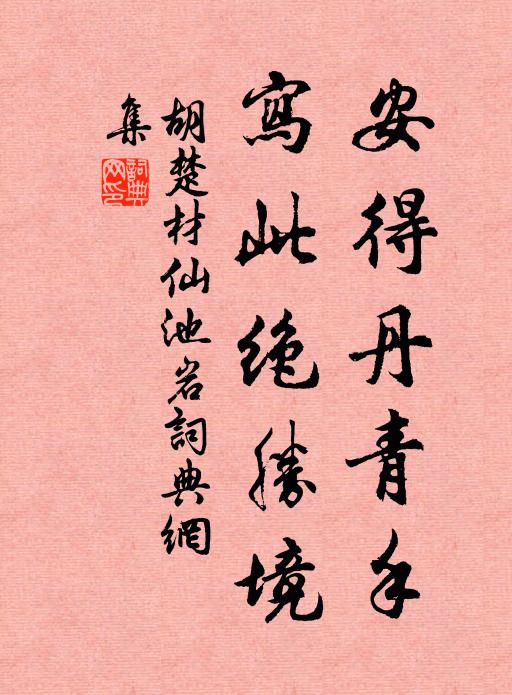 安得丹青手
寫此絕勝境
胡楚材仙池岩詞典網
集
詞典
网印